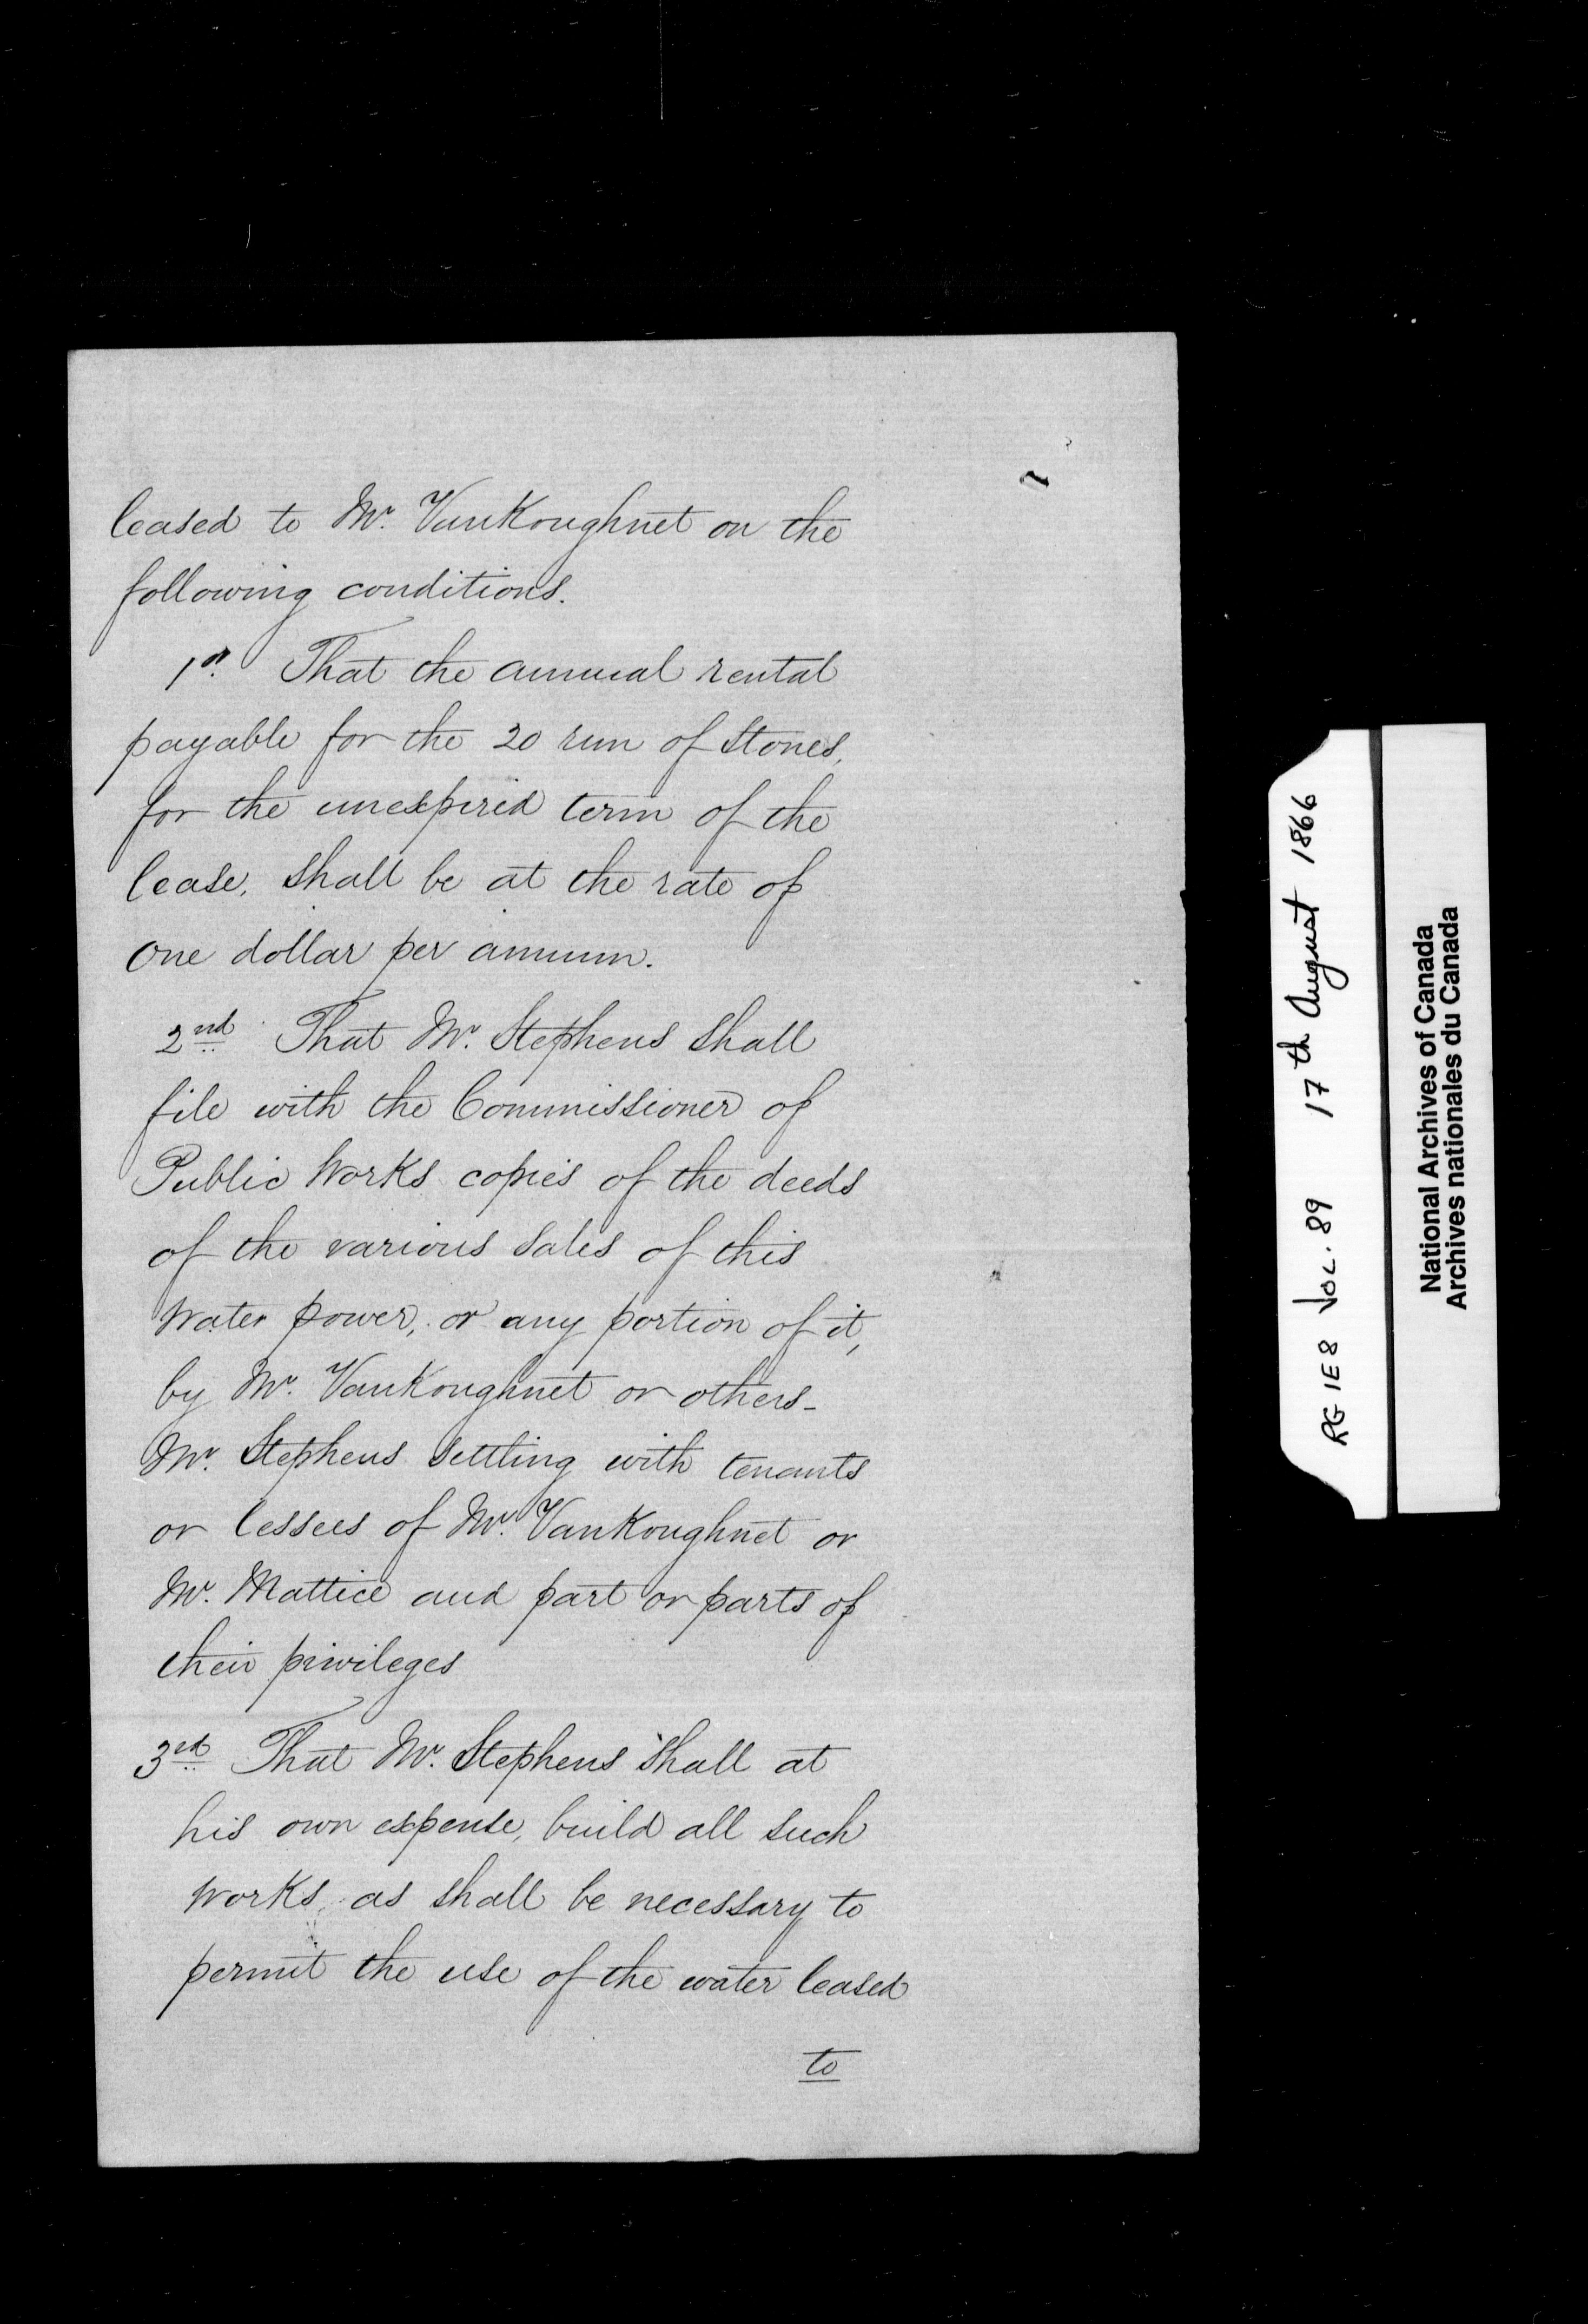 leased to Mr. VanKoughnet on the
following conditions.
1st. That the annual rental
payable for the 20 run of Stones,
for the unexpired term of the
lease, shall be at the rate of
one dollar per annum.
2nd That Mr. Stephens shall
file with the Commissioner of
Public Works copies of the deeds
of the various sales of this
Water power, or any portion of it,
by Mr. VanKoughnet or others_
Mr. Stephens settling with tenants
or lessees of Mr. VanKoughnet or
Mr. Mattice and part or parts of
their privileges
3rd That Mr. Stephens shall at
his own expense, build all such
works, as shall be necessary to
permit the use of the water leased
to
RG 1E8 Vol. 89 17th August 1866
National Archives of Canada
Archives nationales du Canada